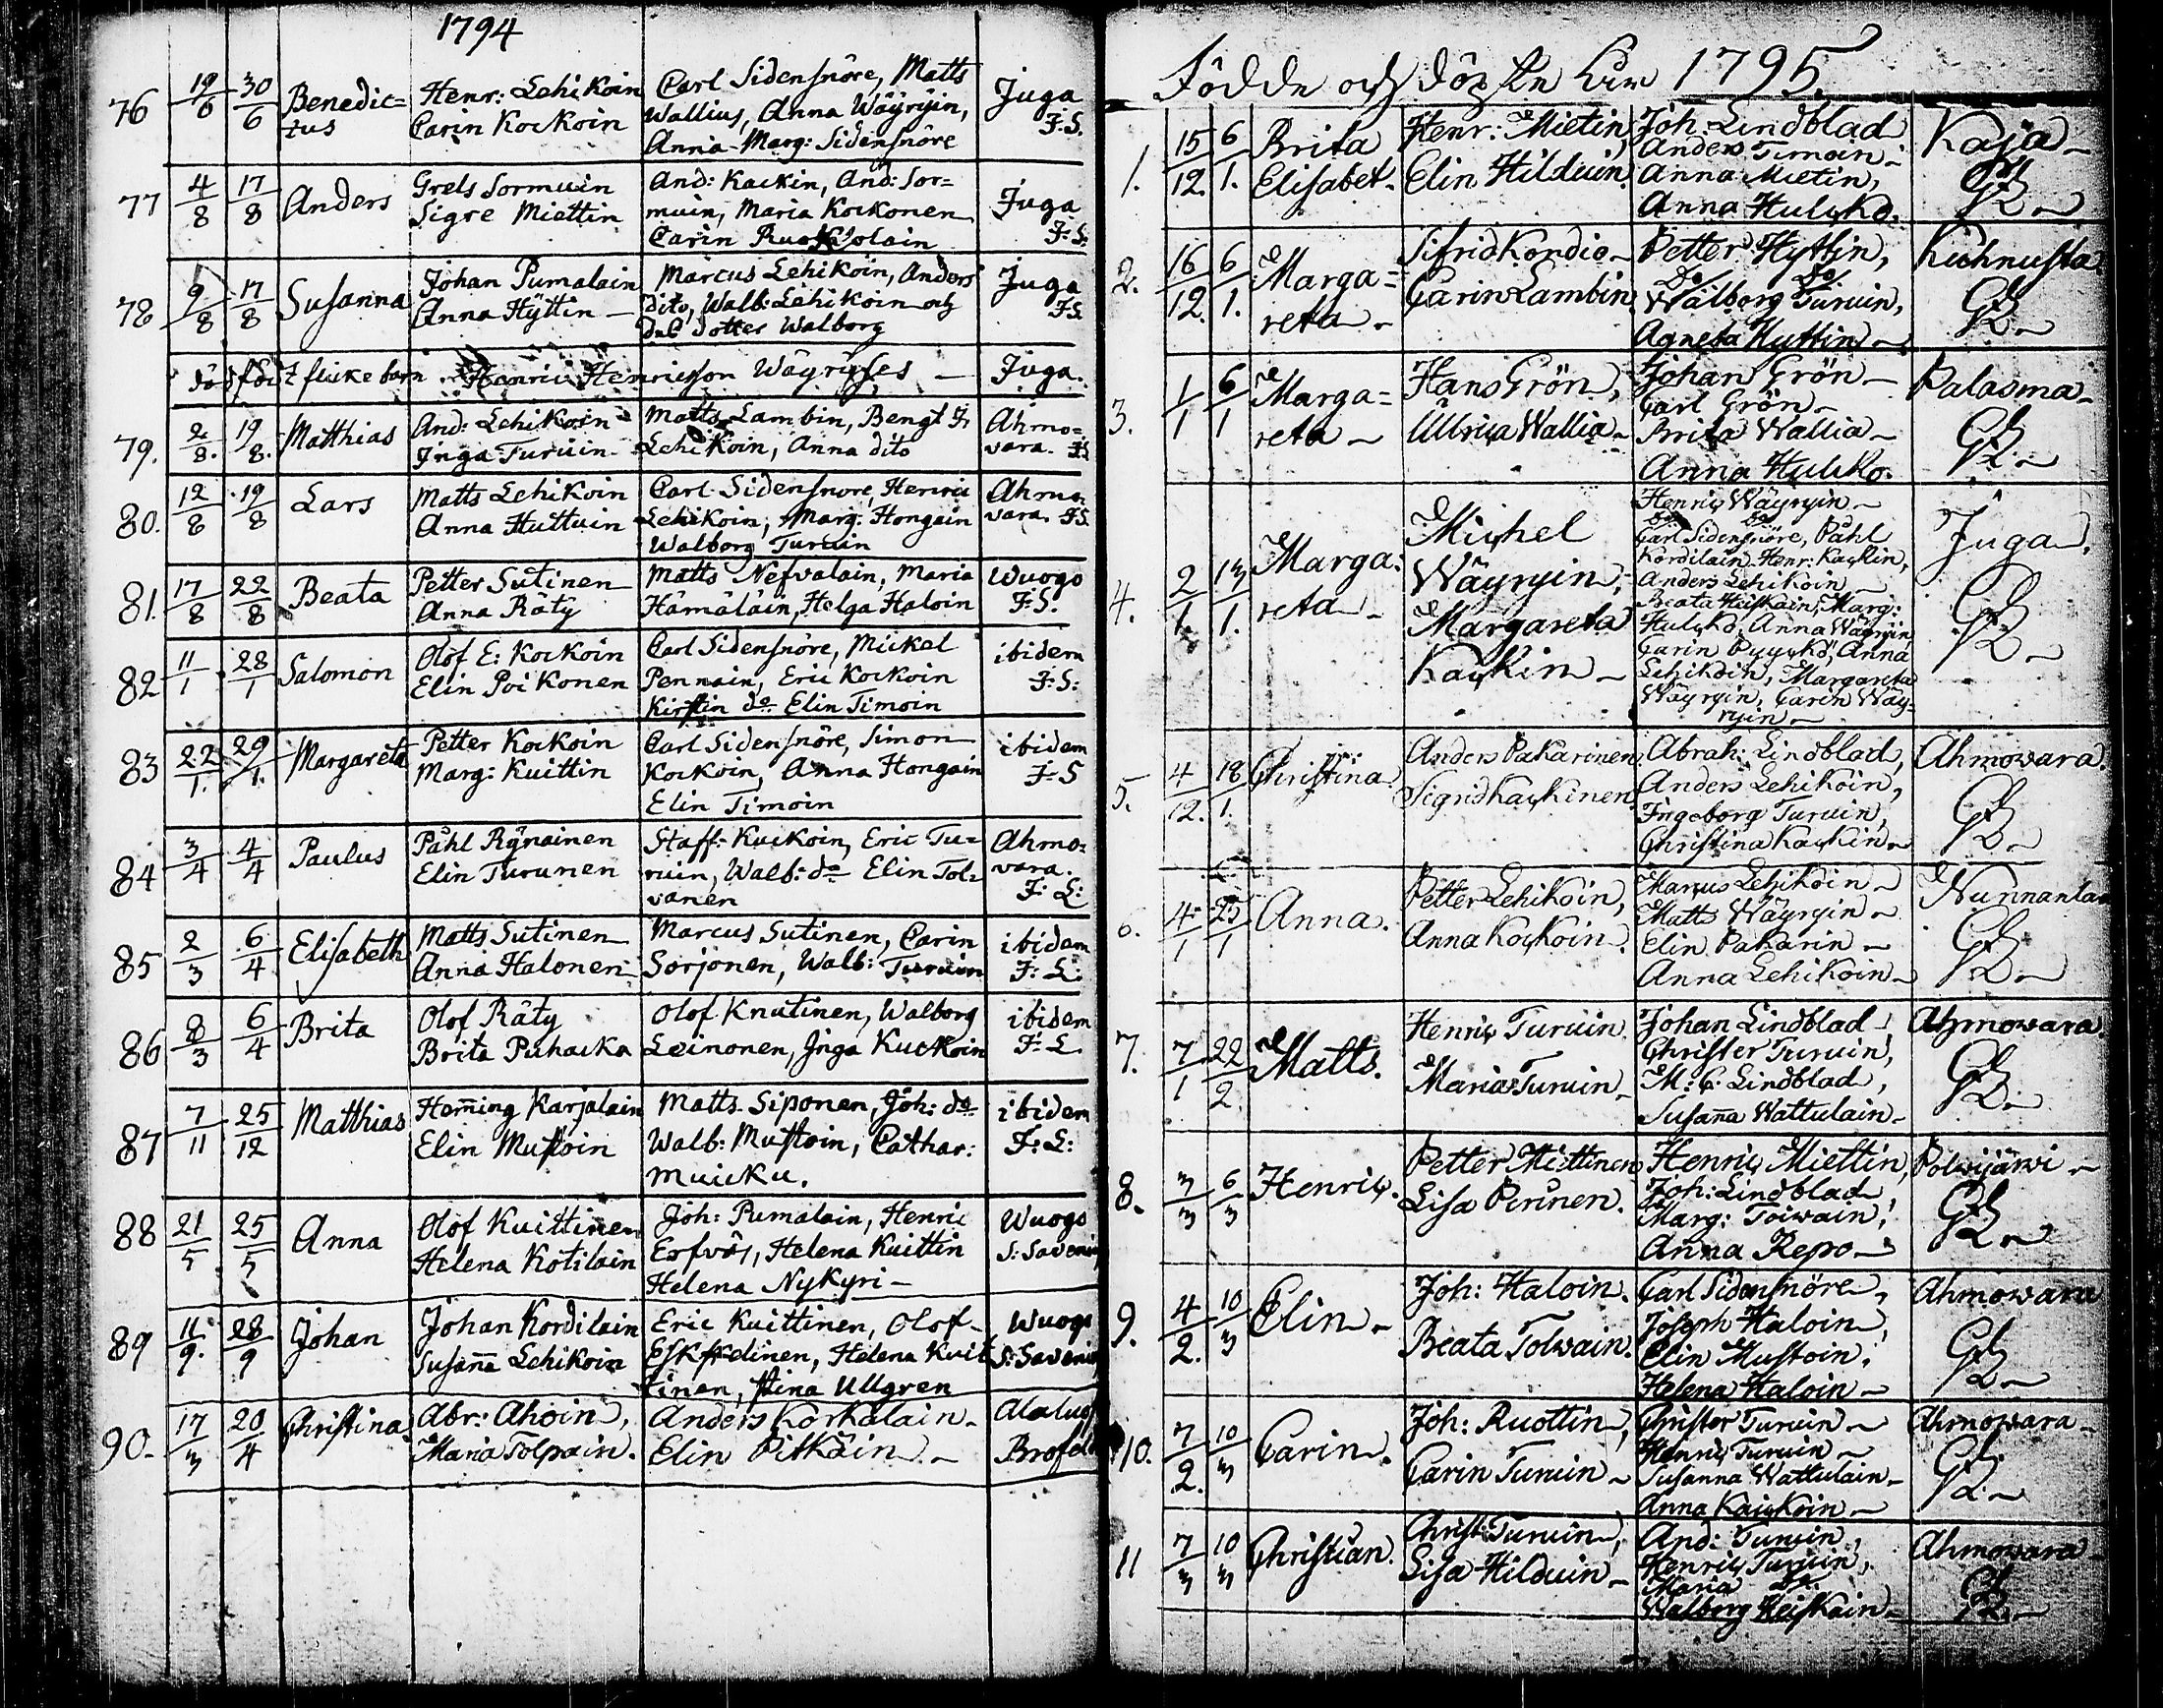 1794
76 19/6 30/6 Benedic= Henr: Lehikoin Carl Sidensnöre, Matts Juga
tus Carin Kockoin Wallius, Anna Wäyryin, F.S.
Anna Marg: Sidensnöre
77 4/8 17/8 Anders Grels Sormuin And: Kackin, And: Sor= Juga
Sigre Miettin muin, Maria Kockonen F.S.
Carin
78 9/8 17/8 Susanna Johan Pumalain Marcus Lehikoin, Anders Juga
Anna Hÿttin dito, Walb: Lehikoin och F.S.
dotter Walborg
dödfödt flicke barn Henric Henricsson Wäyrÿses Juga.
79. 2/8. 19/8. Matthias And: Lehikoin Matts Lambin, Bengt Ahmo=
Inga Turuin Lehikoin, Anna dito vara. F.S.
80. 12/8 19/8 Lars Matts Lehikoin Carl Sidensnore, Henric Ahmo=
Anna Huttuin Lehikoin, Marg: Hongain vara. F.S.
Walborg Turuin
81. 17/8 22/8 Beata Petter Sutinen Matts Nefvalain, Maria Wuogo
Anna Rätÿ Hämäläin, Helga Haloin F.S.
82 11/1 28/1 Salomon Olof E: Kockoin Carl Sidensnöre, Mickel ibidem
Elin Poikonen Pennain, Eric Kockoin F:S:
Kirstin do Elin Timoin
83 22/1. 29/1. Margareta Petter Kockoin Carl Sidensnöre, Simon ibidem
Marg: Kuittin Kockoin, Anna Hongain F:S
Elin Timoin
84 3/4 4/4 Paulus Påhl Rÿnainen Staff: Kuckoin, Eric Tu= Ahmo=
Elin Turunen ruin, Walb: do Elin Tol= vara.
vanen F: L:
85 2/3 6/4 Elisabeth Matts Sutinen Marcus Sutinen, Carin ibidem
Anna Halonen Sorjonen, Walb: Turuin F: L:
86 8/3 6/4 Brita Olof Räty Olof Knutinen, Walborg ibidem
Brita Puhacka Leinonen, Inga Kuckoin F: L.
87 7/11 25/12 Matthias Hem̄ing Karjalain Matts Siponen, Joh: do ibidem
Elin Mustoin Walb: Mustoin, Cathar: F: L:
Muicku.
88 21/5 25/5 Anna Olof Kuittinen Joh: Pumalain, Henric Wuogo
Helena Kotilain Helena Kuittin S: Saveni
Helena Nykyri
89 11/9. 28/9 Johan Johan Kordilain Eric Kuittinen, Olof Wuogo
Susan̄a Lehikoin Eskelinen, Helena Kuit S: Saveni
tinen, Stina Ullgren
90. 17/3 20/4 Christina Abr: Ahoin, Anders Korkalain
Maria Tolpain. Elin Pitkäin
Födde och döpte åhr 1795.
1. 15/12. 6/1. Brita Henr: Mietin, Joh: Lindblad Kaja
Elisabet. Elin Hilduin. Anders Timoin
Anna Mietin,
Anna Hulcko.
2. 16/12. 6/1. Marga= Sifrid Kondio Petter Hyttin, Kuhnusta
reta Carin Lambin. Walborg Turuin,
Agneta Hyttin
3. 1/1 6/1 Marga= Hans Grön, Johan Grön Palasma
reta Ulrica Wallia Carl Grön
Brita Wallia
Anna Hulcko.
4. 2/1. 13/1. Marga= Michel Henric Wäyryin Juga.
reta Wäyryin, Carl Sidensnöre, Påhl
Margareta Kordilain, Henr: Kackin,
Kackin Anders Lehikoin
Beata Heiskain, Marg:
Hulcko, Anna Wäyryin
Carin Pyyckö, Anna
Lehikoin, Margareta
Wäyryin, Carin Wäy=
ryin
5. 4/12. 18/1. Christina Anders Pakarinen Abrah: Lindblad, Ahmowara.
Sigrid Kackinen. Anders Lehikoin,
Ingeborg Turuin,
Christina Kackin
6. 4/1 25/1 Anna. Petter Lehikoin, Marcus Lehikoin Nunnanlax
Anna Kockoin. Matts Wäyryin
Elin Pakarin
Anna Lehikoin
7. 7/1 22/2. Matts. Henric Turuin Johan Lindblad Ahmowara.
Maria Turuin Christer Turuin,
M: C. Lindblad,
Susan̄a Wattulain
8. 3/3 6/3 Henric. Petter Miettinen Henric Miettin, Polvijärvi
Lisa Perinen. Joh: Lindblad
Marg: Toiwain,
Anna Repo
9. 4/2. 10/3 Elin Joh: Haloin. Carl Sidensnöre, Ahmowara
Beata Tolwain. Joseph Haloin,
Elin Mustoin,
Helena Haloin
10. 7/2. 10/3 Carin. Joh: Ruottin, Christer Turuin Ahmowara
Carin Turuin Henric Turuin
Susanna Wattulain
Anna Kaickoin
11 7/3 10/3 Christian. Christ: Turuin, And: Turuin, Ahmowara
Lisa Hilduin Henric Turuin,
Maria do.
Walborg Heiskain